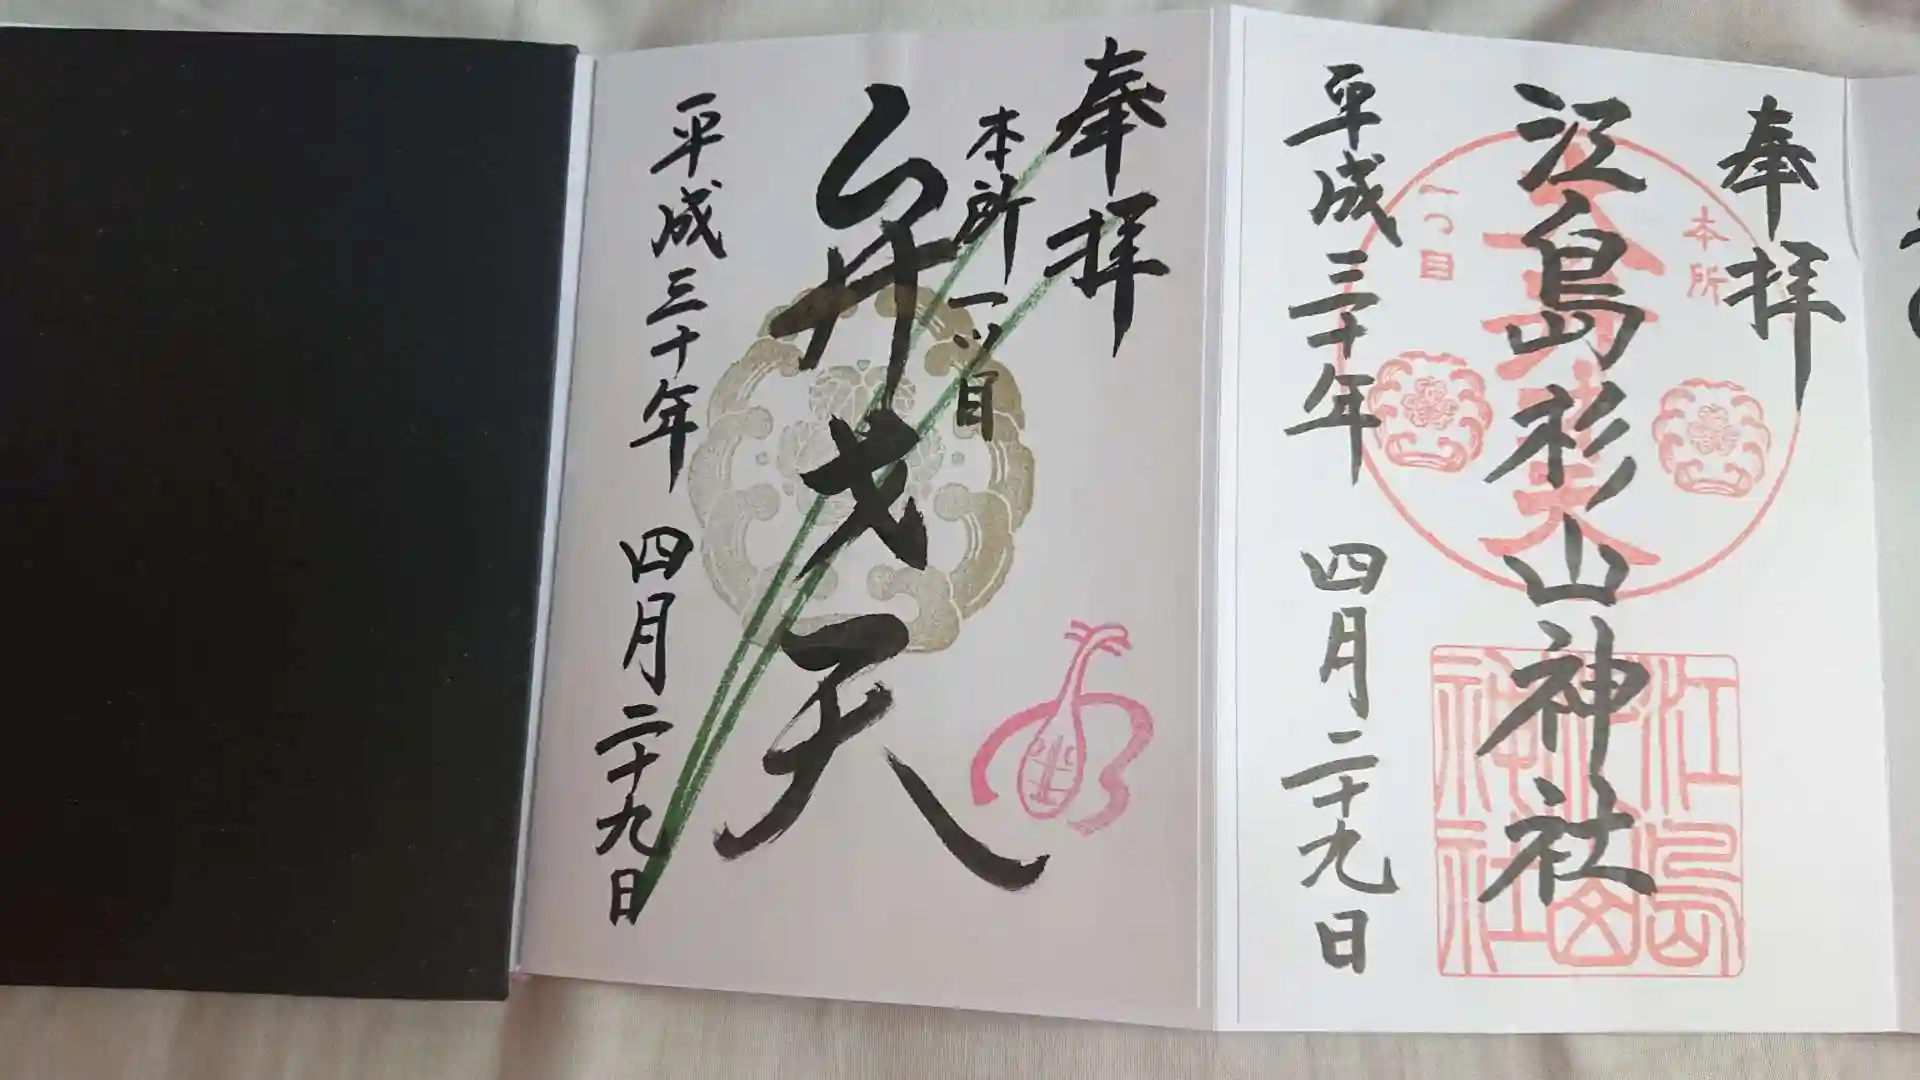 奉拝
江島杉山神社
平成三十年 四月二十九日
本所
一つ目
江島
杉山
神社
奉拝
本所一ツ目
弁才天
平成三十年 四月二十九日